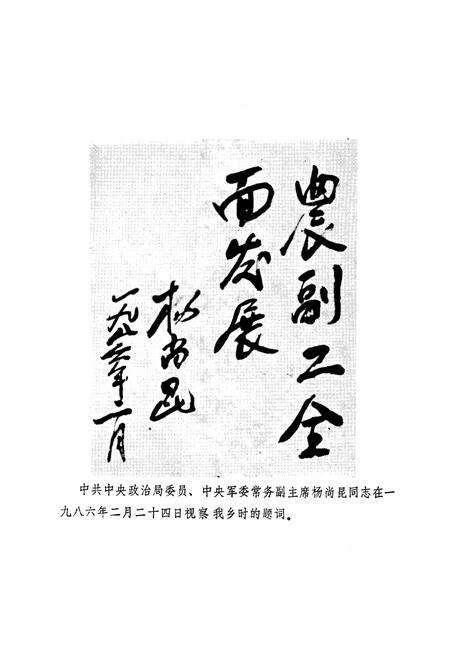 農副工全
面发展
杨尚昆
一九八六年二月
中共中央政治局委员、中央军委常务副主席杨尚昆同志在一
九八六年二月二十四日视察我乡时的题词。